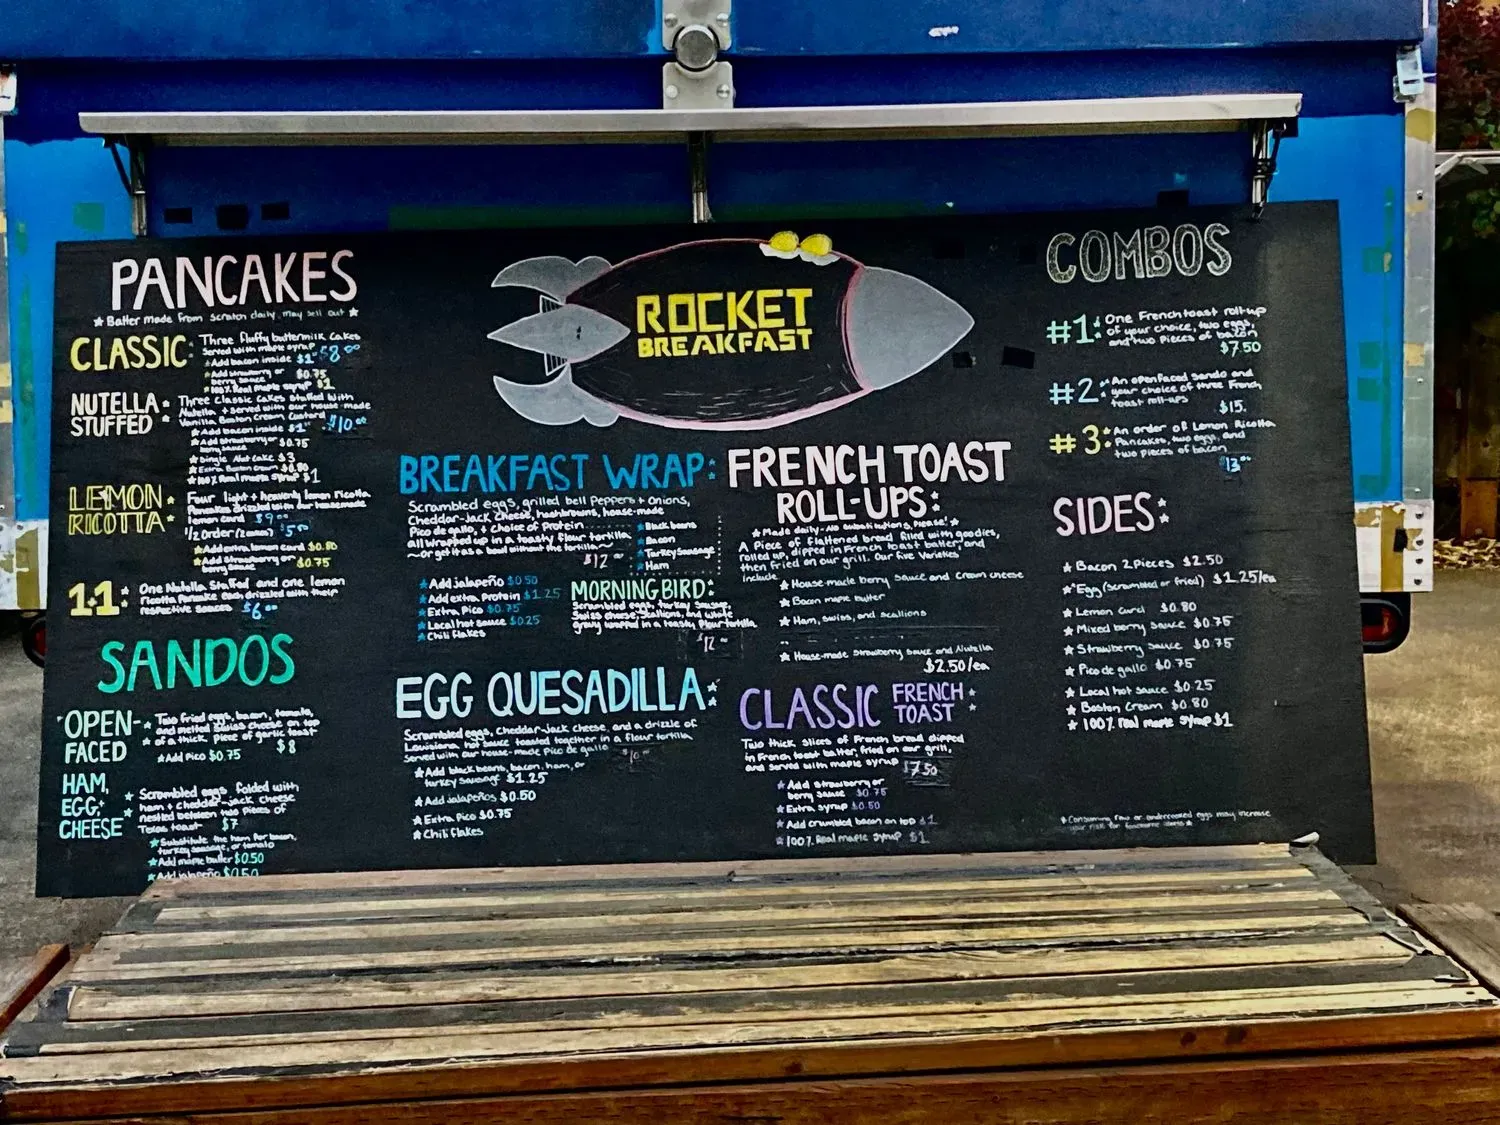 PANCAKES
★ Batter made from scratch daily, may sell out ★
CLASSIC: Three fluffy buttermilk cakes
served with maple syrup $8.00
★ Add bacon inside $1
★ Add strawberry or $0.75
berry sauce
★ 100% Real maple syrup $1
NUTELLA STUFFED: Three Classic Cakes stuffed with
Nutella + served with our house-made
Vanilla Boston Cream Custard $10.00
★ Add bacon inside $1
★ Add strawberry or $0.75
berry sauce
★ Single Nut Cake $3
★ Extra Boston Cream $0.80
★ 100% Real Maple Syrup $1
LEMON RICOTTA: Four light + heavenly lemon ricotta
Pancakes drizzled with our housemade
lemon curd $9.00
1/2 Order (2 cakes) $5.00
★ Add extra lemon curd $0.80
★ Add strawberry or $0.75
berry sauce
1:1: One Nutella Stuffed and one lemon
ricotta Pancake each drizzled with their
respective sauces $6.00
SANDOS
OPEN-FACED ★ Two fried eggs, bacon, tomato,
★ and melted Swiss cheese on top
★ of a thick piece of garlic toast
$8
★ Add Pico $0.75
HAM, EGG, + CHEESE
★ Scrambled eggs folded with
★ ham + cheddar-jack cheese
nestled between two pieces of
Texas toast $7
★ Substitute the ham for bacon,
turkey sausage, or tomato
★ Add maple butter $0.50
★ Add jalapeño $0.50
ROCKET
BREAKFAST
BREAKFAST WRAP:
Scrambled eggs, grilled bell peppers + onions,
Cheddar-Jack Cheese, hashbrowns, house-made
Pico de gallo, + choice of Protein
all wrapped up in a toasty flour tortilla
~ Or get it as a bowl without the tortilla ~
$12.00
★ Black beans
★ Bacon
★ Turkey Sausage
★ Ham
★ Add jalapeño $0.50
★ Add extra Protein $1.25
★ Extra Pico $0.75
★ Local hot sauce $0.25
★ Chili flakes
MORNING BIRD:
Scrambled eggs, turkey sausage,
Swiss cheese, Scallions, and white
gravy wrapped in a toasty flour tortilla
$12.00
EGG QUESADILLA:
Scrambled eggs, Cheddar-jack cheese, and a drizzle of
Louisiana hot sauce toasted together in a flour tortilla
Served with our house-made Pico de gallo $10.00
★ Add black beans, bacon, ham, or
turkey sausage $1.25
★ Add jalapeños $0.50
★ Extra Pico $0.75
★ Chili flakes
FRENCH TOAST
ROLL-UPS:
★ Made daily - no substitutions, please! ★
A Piece of flattened bread filled with goodies,
rolled up, dipped in French toast batter, and
then fried on our grill. Our five varieties
include
★ House-made berry sauce and cream cheese
★ Bacon maple butter
★ Ham, swiss, and scallions
★ House-made Strawberry sauce and Nutella
$2.50/ea
CLASSIC FRENCH TOAST
Two thick slices of French bread dipped
in French toast batter, fried on our grill,
and served with maple syrup $7.50
★ Add strawberry or
berry sauce $0.75
★ Extra syrup $0.50
★ Add crumbled bacon on top $1
★ 100% Real maple syrup $1
COMBOS
#1: One French toast roll-up
of your choice, two eggs,
and two pieces of bacon
$7.50
#2: An open faced sando and
your choice of three French
toast roll-ups
$15.
#3: An order of Lemon Ricotta
Pancakes, two eggs, and
two pieces of bacon
$13.00
SIDES:
★ Bacon 2 Pieces $2.50
★ Egg (scrambled or fried) $1.25/ea
★ Lemon curd $0.80
★ Mixed berry sauce $0.75
★ Strawberry sauce $0.75
★ Pico de gallo $0.75
★ Local hot sauce $0.25
★ Boston Cream $0.80
★ 100% real maple syrup $1
★ Consuming raw or undercooked eggs may increase
your risk for foodborne illness ★